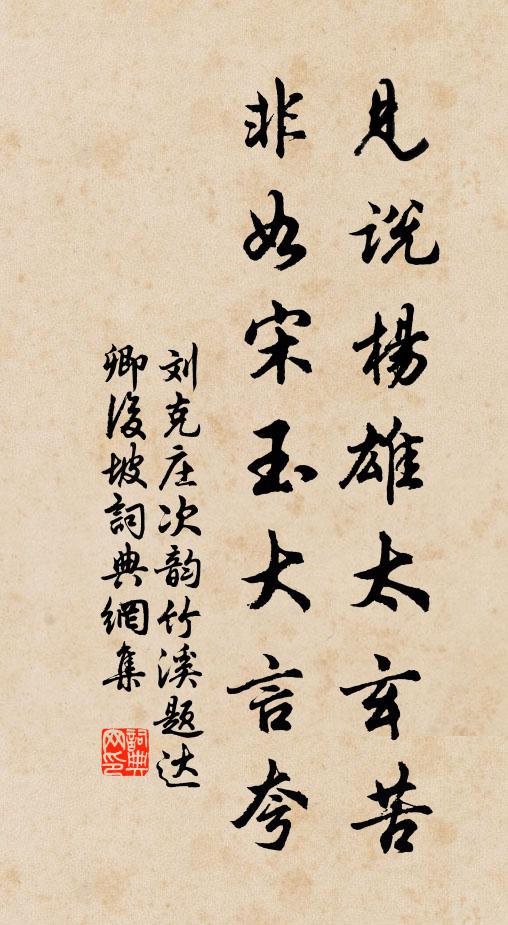 見说楊雄太玄苦
非如宋玉大言夸
刘克庄次韵竹溪题达
卿後坡詞典網集
詞典网印